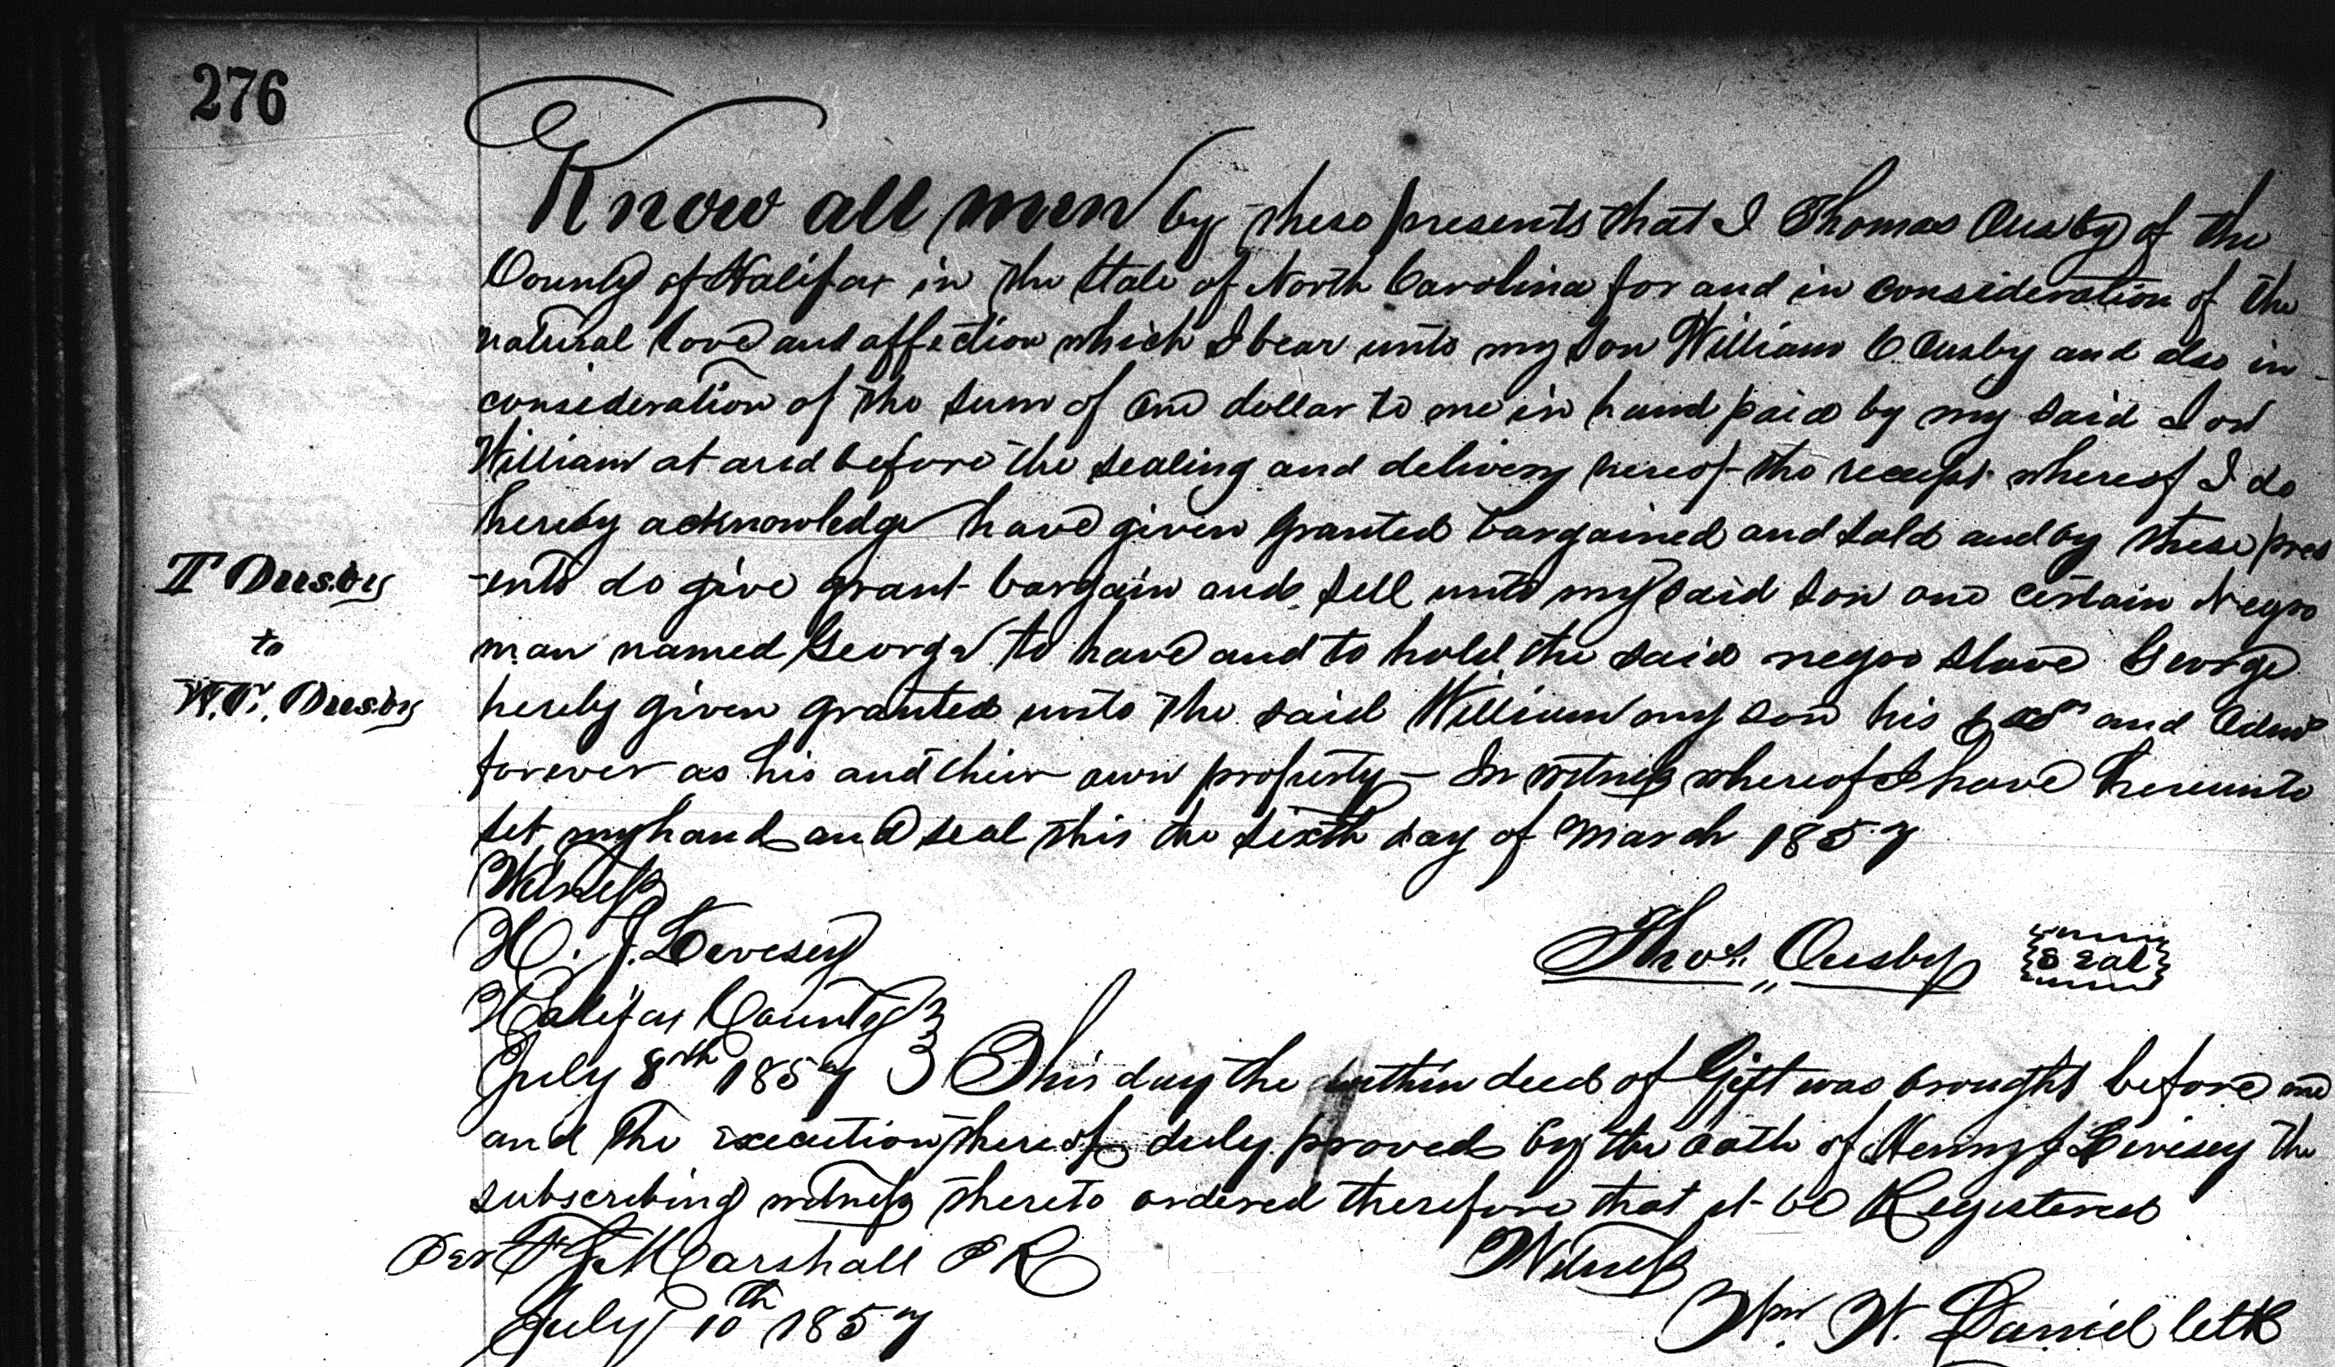 276
Know all men by these presents that I Thomas Ousby of the
County of Halifax in the State of North Carolina for and in consideration of the
natural love and affection which I bear unto my son William C. Ousby and also in
consideration of the sum of one dollar to me in hand paid by my said Son
William at and before the sealing and delivery hereof the receipt whereof I do
hereby acknowledge have given granted bargained and sold and by these pres
-ents do give grant bargain and sell unto my said son one certain Negro
man named George to have and to hold the said negro slave George
hereby given granted unto the said William my son his and Admrs
forever as his and their own property - In witness whereof I have hereunto
set my hand and seal this the sixth day of March 1857
T Ousby
to
Ousby
Witness
H. J. Livesey
Thos. Ousby Seal
Halifax County
July 8th 1857 This day the within deed of Gift was brought before me
and the execution thereof duly proved by the oath of Henry J Livesey the
subscribing witness thereto ordered therefore that it be Registered
Marshall PR
Witness
July 10th 1857
Wm. W. Daniel